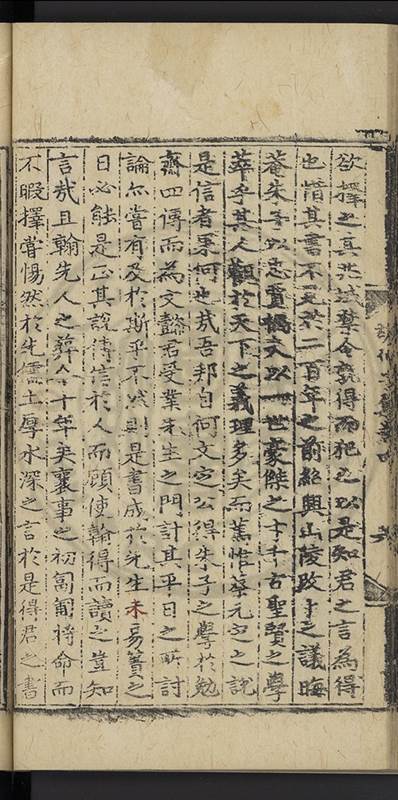 欲擇之真兆域禁令孰得而犯之以是知君之言為得
也惜其書不見於二百年之前紹興山陵改卜之議晦
菴朱子以忠賈禍文以一世豪傑之才千古聖賢之學
萃乎其人觀於天下之義理多矣而篤信蔡元定之說
是信者果何也哉吾邦自何文定公得朱子之學於勉
齋四傳而為文懿君受業先生之門計其平日之所討
論亦嘗有及於斯乎不然則是書成於先生未易簀之
日必能是正其說傳信於人而顧使翰得而讀之豈知
言哉且翰先人之葬今十年矣襄事之初匍匐將命而
不暇擇嘗惕然於先儒土厚水深之言於是得君之書